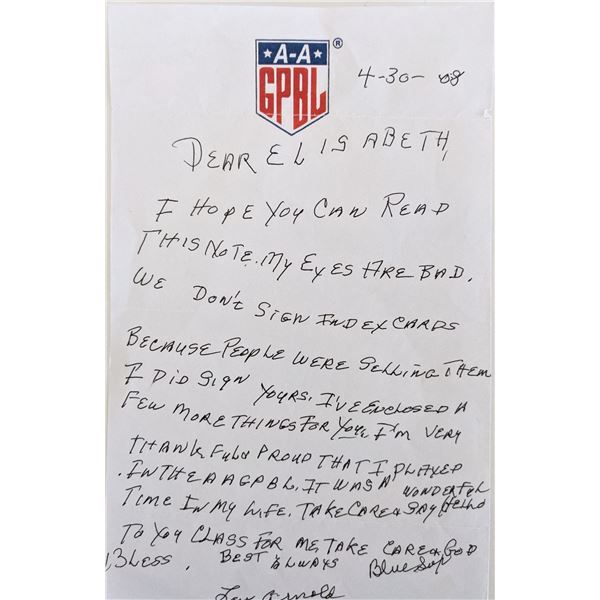 A-A
GPBL
®
4-30-08
DEAR ELISABETH,
I HOPE YOU CAN READ
THIS NOTE. MY EYES ARE BAD.
WE DON'T SIGN INDEX CARDS
BECAUSE PEOPLE WERE SELLING THEM
I DID SIGN YOURS, I'VE ENCLOSED A
FEW MORE THINGS FOR YOU, I'M VERY
THANKFUL & PROUD THAT I PLAYED
IN THE AAGPBL. IT WAS A WONDERFUL
TIME IN MY LIFE. TAKE CARE & SAY HELLO
TO YOU CLASS FOR ME, TAKE CARE & GOD
BLESS. BEST ALWAYS
Lou Arnold